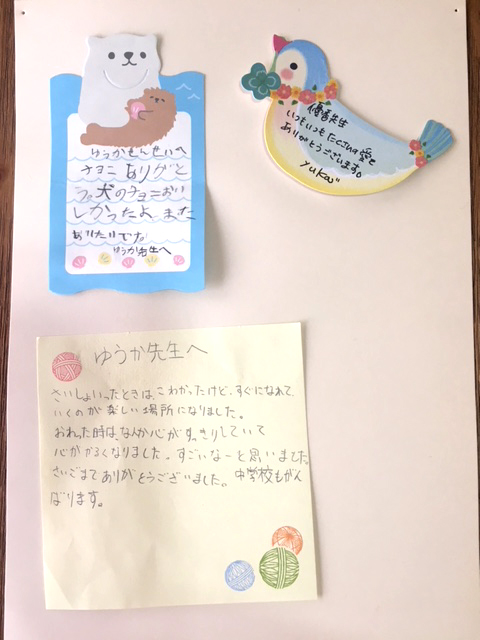 ゆうかせんせいへ
チョコ ありがと
う。犬のチョコおい
しかったよ また
あいたいです。
ゆうか先生へ
優香先生
いつもいつもたくさんの愛を
ありがとうございます。
yuka
ゆうか先生へ
さいしょいったときは、こわかったけど、すぐになれて、
いくのが楽しい場所になりました。
おわった時は、なんか心がすっきりしていて
心がかるくなりました。すごいなーと思いました。
さいごまでありがとうございました。中学校もがん
ばります。